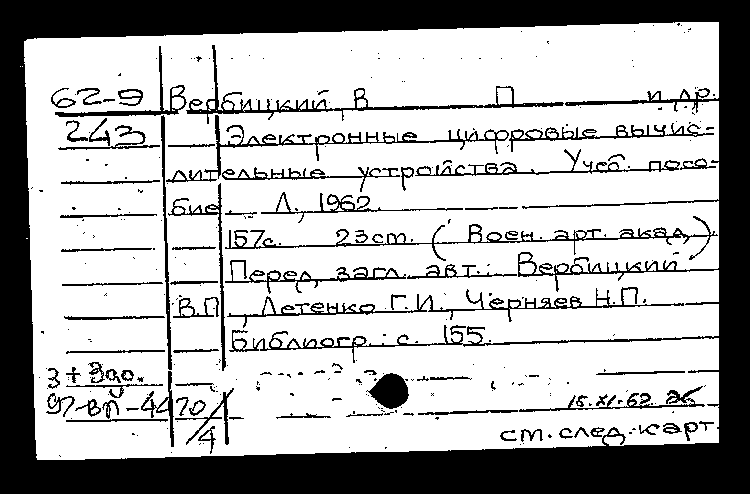 62-9 Вербицкий, В П и др.
243 Электронные цифровые вычис=
лительные устройства. Учеб. посо=
бие. Л., 1962.
157с. 23cm. (Воен. арт. акад.)
Перед загл. авт.: Вербицкий
В.П., Летенко Г.И., Черняев Н.П.
Библиогр.: с. 155.
3 + 3до.
97-вп-4470/4
15.XI.62.
см. след. карт.